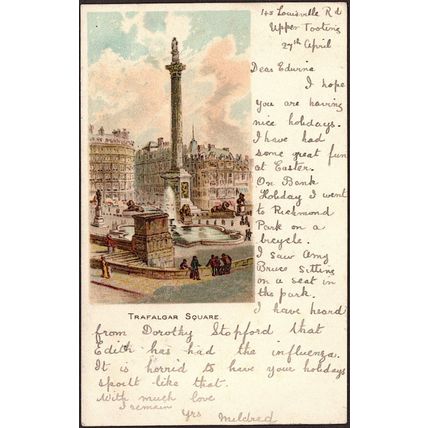 145 Louisville Rd
Upper Tooting
27th April
Dear Edwina
I hope
you are having
nice holidays.
I have had
some great fun
at Easter.
On Bank
Holiday I went
to Richmond
Park on a
bicycle.
I saw Amy
Bruce sitting
on a seat in
the park.
I have heard
TRAFALGAR SQUARE
from Dorothy Stopford that
Edith has had the influenza.
It is horrid to have your holidays
spoilt like that.
With much love
I remain
yrs Mildred